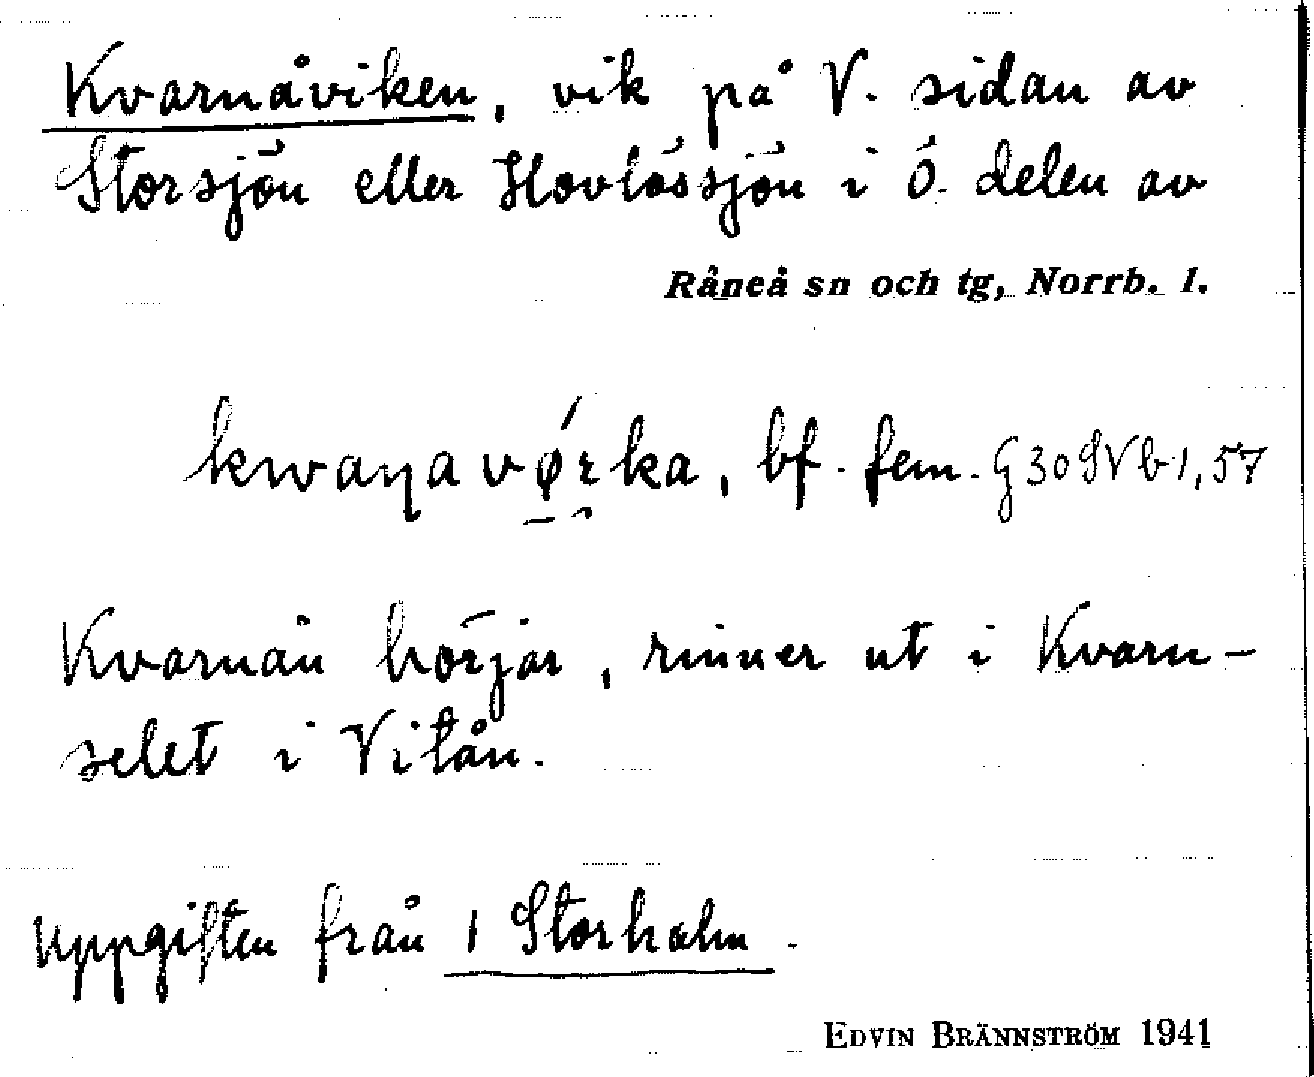 Kvarnåviken, vik på V. sidan av
Storsjön eller Hovlössjön i Ö. delen av
Råneå sn och tg, Norrb. l.
kwaɳavø̱rka, bf. fem.
Kvarnån börjar, rinner ut i Kvarn-
selet i Vitån.
Uppgiften från 1 Storholm.
EDVIN BRÄNNSTRÖM 1941